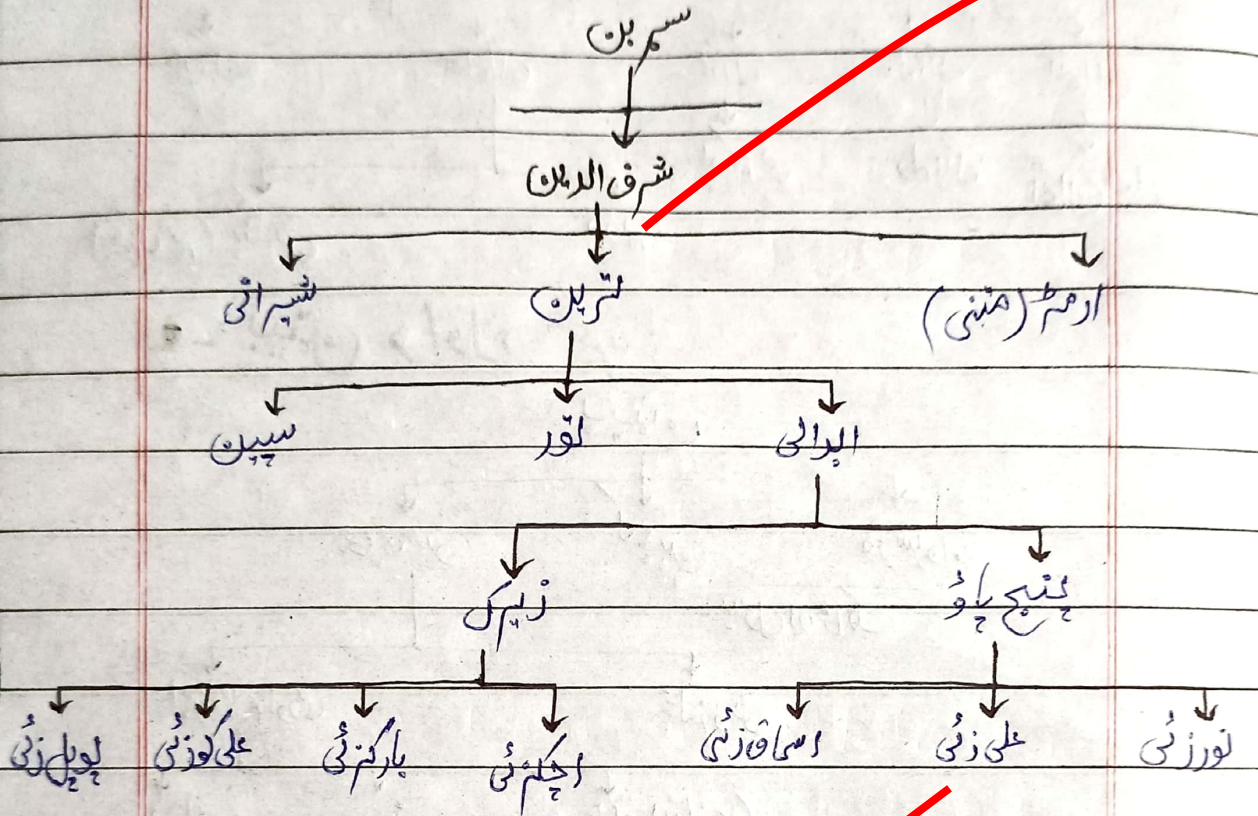 سربن
شرف الدین
ارمڑ (متبنی) ترین شیرانی
ابدالی تور سپین
پنج پاؤ زیرک
نورزئی علی زئی اسحاق زئی اچکزئی بارکزئی علی کوزئی پوپل زئی